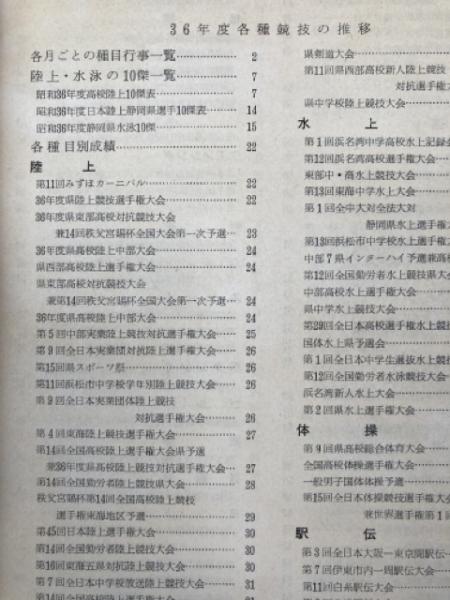 36年度各種競技の推移
各月ごとの種目行事一覧 2
陸上・水泳の10傑一覧 7
昭和36年度高校陸上10傑表 7
昭和36年度日本陸上静岡県選手10傑表 14
昭和36年度静岡県水泳10傑 15
各種目別成績 22
陸上
第11回みずほカーニバル 22
36年度県陸上競技選手権大会 22
36年度県東部高校対抗競技大会
兼14回秩父宮賜杯全国大会第一次予選 23
36年度県高校陸上中部大会 24
県西部高校陸上選手権大会 24
県東部高校対抗競技大会
兼第14回秩父宮賜杯全国大会第一次予選 24
36年度県高校陸上中部大会 24
第5回中部実業陸上競技対抗選手権大会 25
第9回全日本実業団対抗陸上選手権大会 26
第15回県スポーツ祭 26
第11回浜松市中学校学年別陸上競技大会 26
第9回全日本実業団体陸上競技
対抗選手権大会 26
第4回東海陸上競技選手権大会 27
第14回全国高校陸上選手権大会県予選
兼36年度県高校陸上競技対抗選手権大会 27
第14回全国勤労者陸上競技県大会 28
秩父宮賜杯第14回全国高校陸上競技
選手権東海地区予選 29
第45回日本陸上選手権大会 30
第14回全国勤労者陸上競技大会 30
第16回東海五県対抗陸上競技大会 30
第7回全日本中学校放送陸上競技大会 31
第14回全国高校陸上選手権大会 31
県剣道大会
第11回県西部高校新人陸上競技
対抗選手権大
県中学校陸上競技大会
水上
第1回浜名湾中学高校水上記録会
第12回浜名湾高校選手権大会
東部中・商水上競技大会
第13回東海中学水上大会
第1回全中大対全法大対
静岡県水上選手権
第13回浜松市中学校水上選手権
中部7県インターハイ予選兼高校
第12回全国勤労者水上競技県大会
中部高校水上選手権大会
県中学水上競技大会
第29回全日本高校選手権水上競技
国体水上県予選会
第1回全日本中学生選抜水上競技
第12回全国勤労者水泳競技大会
浜名湾新人水上大会
第2回県水上選手権大会
体操
第9回県高校総合体育大会
全国高校体操選手権大会
一般男子国体体操予選
第15回全日本体操競技選手権大
兼世界選手権第1
駅伝
第3回全日本大阪―東京間駅伝
第7回伊東市内一周駅伝大会
第11回白糸駅伝大会